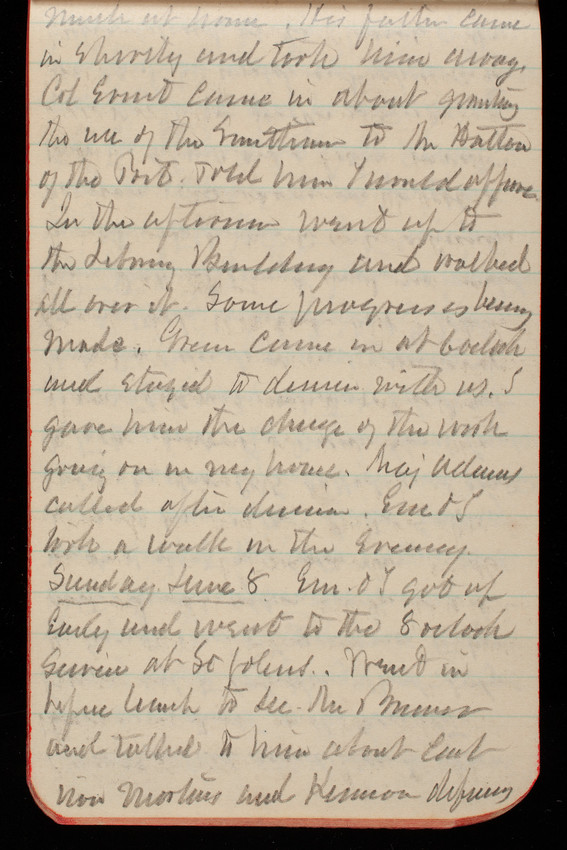 much at home. His father came
in shortly and took him away.
Col Ernst came in about granting
the use of the to the
of the Told him I would approve
In the afternoon went up to
the Library Building and walked
all over it. Some progress is being
made. Green came in at 6 oclock
and stayed to dinner with us. I
gave him the charge of the work
going on in my house. Maj Adams
called after dinner. Em & I
took a walk in the Evening.
Sunday June 8 Em. & I got up
Early and went to the 8 oclock
Service at St Johns. Went in
before lunch to see the
and talked to him about Cast
iron mortars and defenses